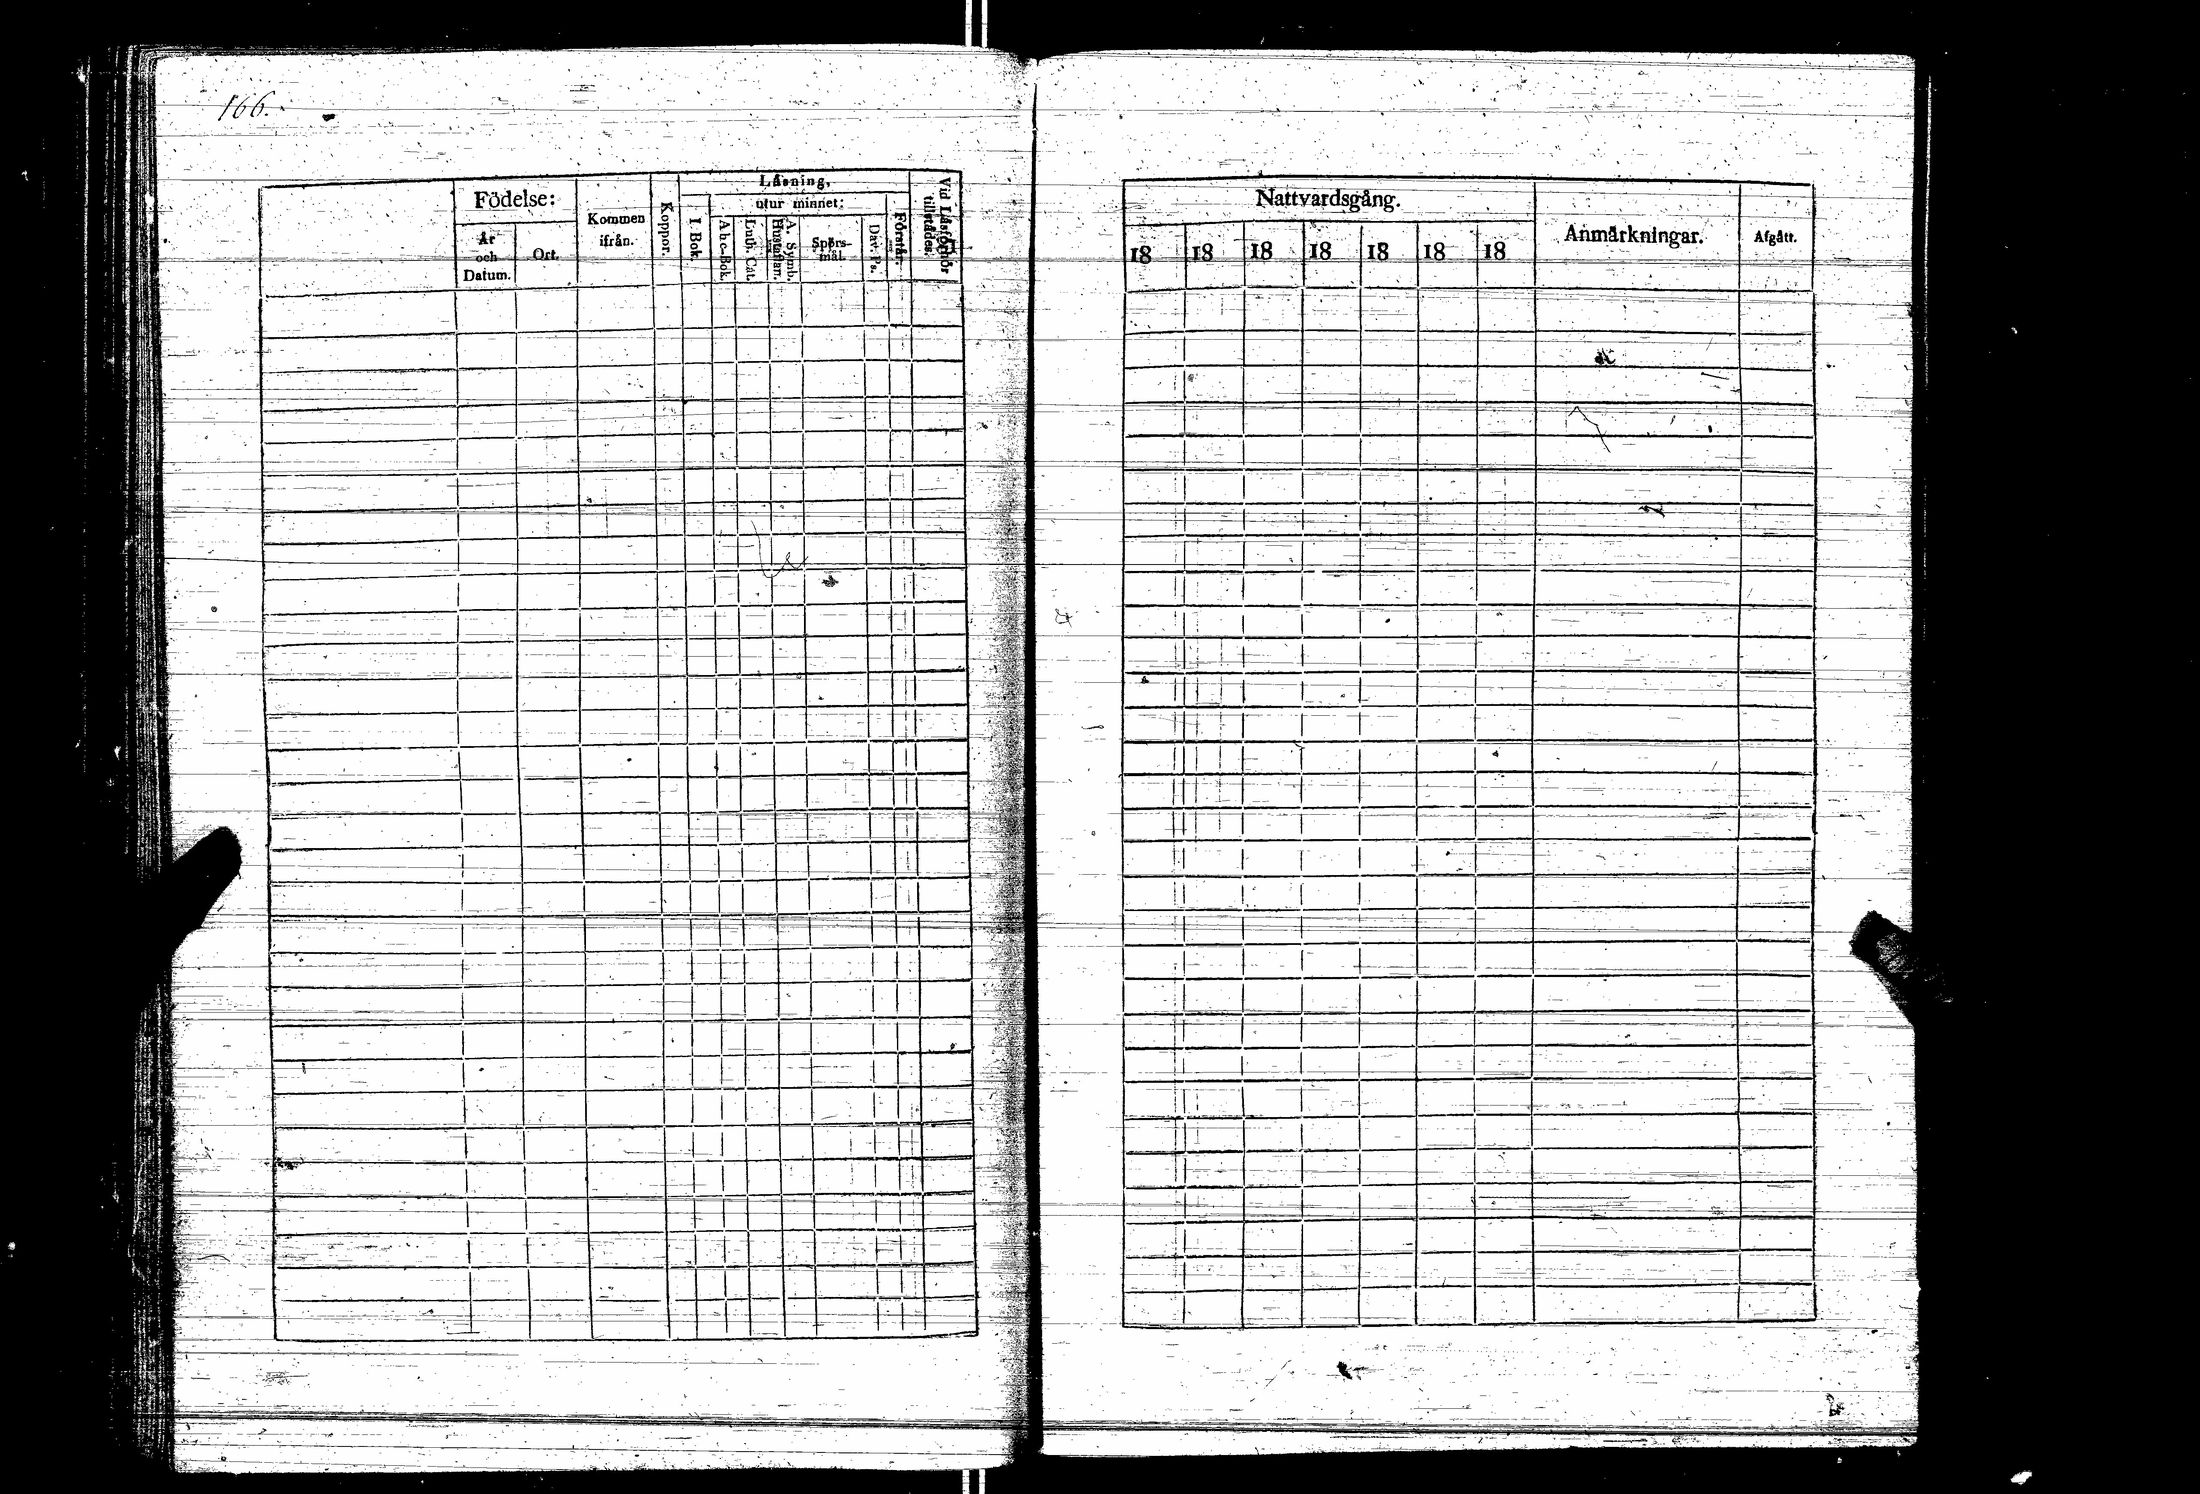 166.
Födelse:
År och Datum.
Ort.
Kommen ifrån.
Koppor.
Läsning,
I Bok.
utur minnet:
Abc-Bok.
Luth. Cat.
A. Symb.
Hustaflan.
Spörsmål.
Dav. Ps.
Förstår.
Vid Läsförhör tillstädes.
Nattvardsgång.
18 18 18 18 18 18 18
Anmärkningar.
Afgått.